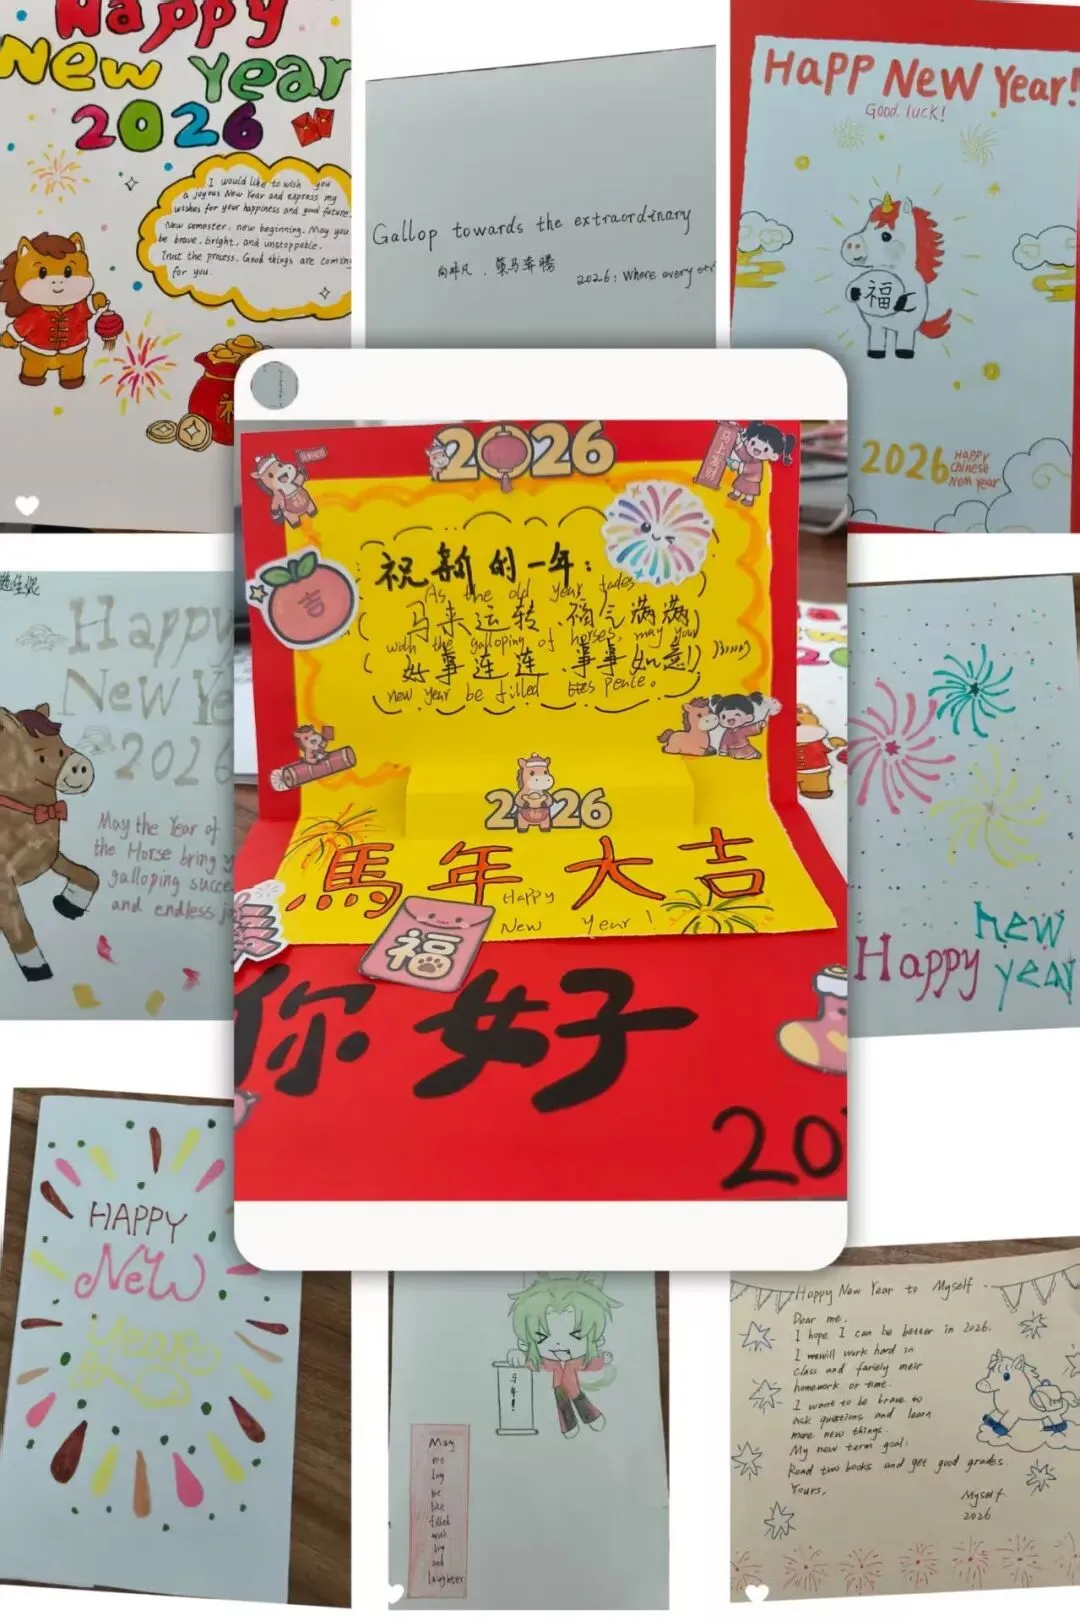 Happy
New Year
2026
I would like to wish you
a joyous New Year and express my
wishes for your happiness and good future.
New semester, new beginning. May you
be brave, bright, and unstoppable.
Trust the process. Good things are coming
for you.
Gallop towards the extraordinary
向非凡、策马奔腾
2026: Where every
HaPP NeW Year!
Good luck!
福
2026
HAPPY
Chinese
New year
2026
马上
祝新的一年:
As the old year fades
马来运转 福气满满
with the galloping of horses, may you
好事连连 事事如意!
new year be filled peace.
吉
2026
馬年大吉
Happy
New Year!
福
你好
20
Happy
New Ye
2026
May the Year of
the Horse bring y
galloping succe
and endless j
Happy new
year
HAPPY
New
Year
马年!
May
me
be
filled
with
joy
and
laughter
Happy New Year to Myself
Dear me,
I hope I can be better in 2026.
I will work hard in
class and
homework or time.
I want to be brave to
ask questions and learn
more new things.
My new term goal:
Read two books and get good grades.
Yours,
Myself
2026